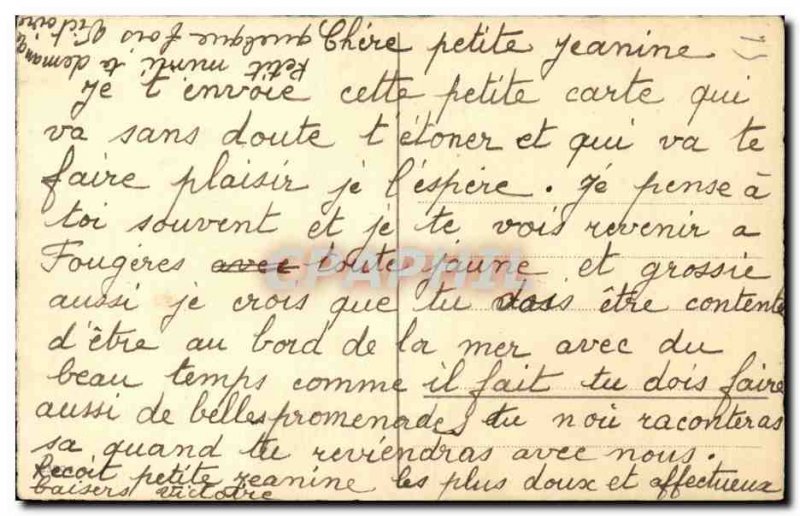 Chére petite Jeanine
Je t'envoie cette petite carte qui
va sans doute t'étoner et qui va te
faire plaisir je l'éspére. Jé pense à
toi souvent et je te vois revenir a
Fougéres avec toute jaune et grossie
aussi je crois que tu dois être contente
d'être au bord de la mer avec du
beau temps comme il fait tu dois faire
aussi de belles promenades tu nou raconteras
sa quand tu reviendras avec nous.
Recoit petite Jeanine les plus doux et affectueux
baisers Victoire
Petit minti te demande
quelque fois Victoire
CPAPHIL